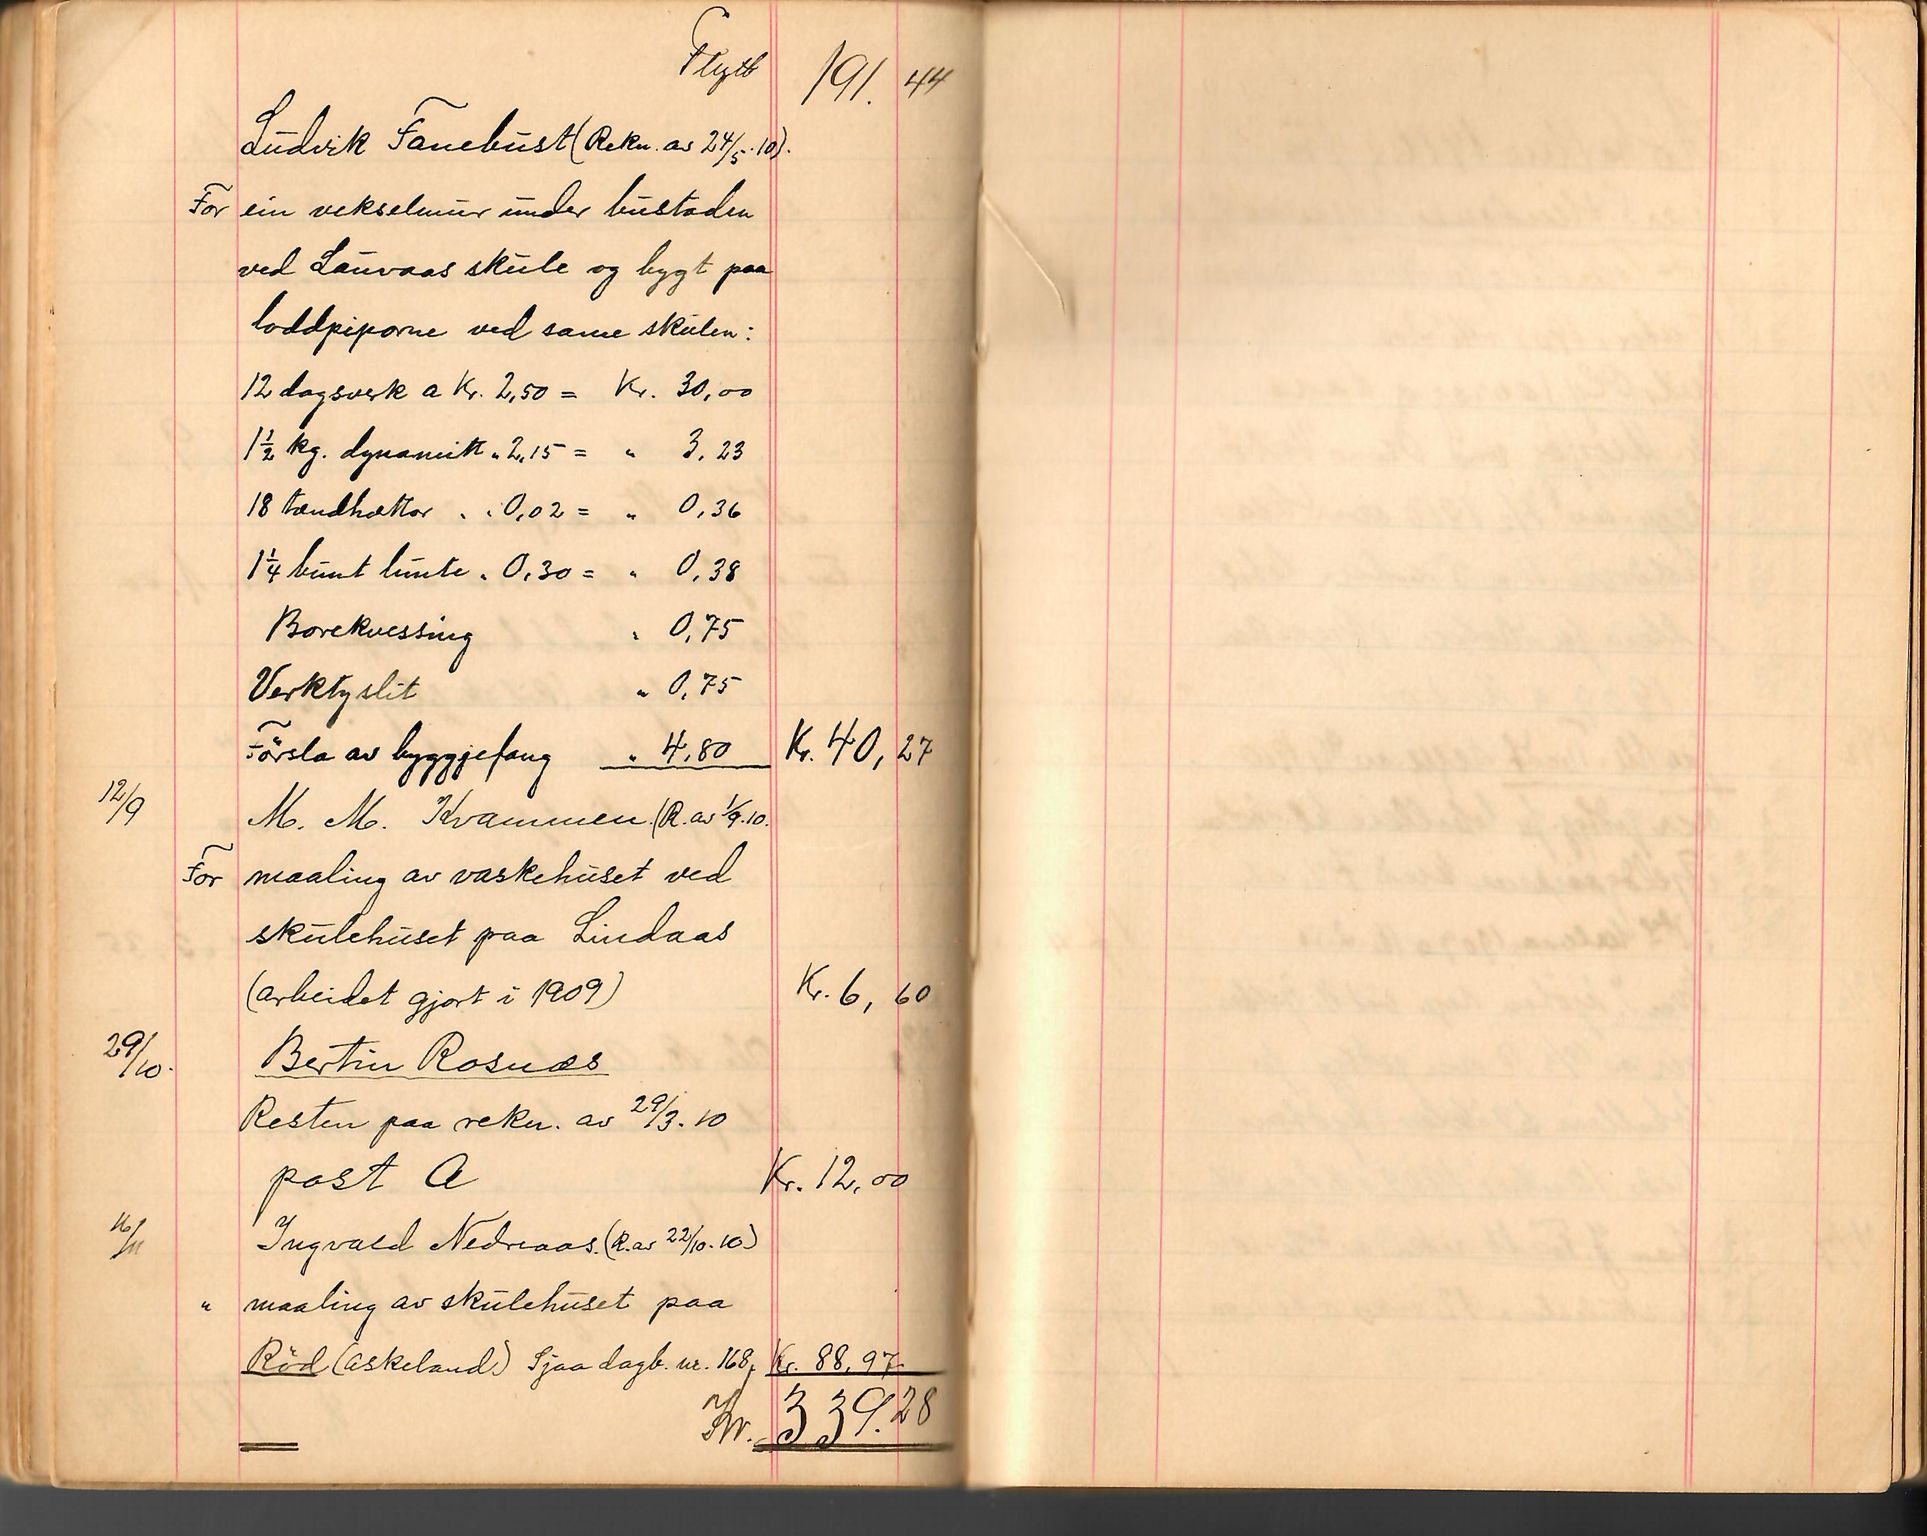 Flytt 191. 44
Ludvik Fanebust (Rekn. av 24/5.10).
For ein vekselmur under bustaden
ved Lauvaas skule og bygt paa
loddpiporne ved same skulen:
12 dagsverk a Kr. 2,50 = Kr. 30,00
1½ kg. dynamitt " 2,15 = " 3,23
18 tændhættor " " 0,02 = " 0,36
1¼ bunt lunte " 0,30 = " 0,38
Borekvessing " 0,75
Verktyslit " 0,75
Försla av byggjefang " 4,80 Kr. 40,27
12/9 M. M. Kvammen. (R. av 1/9.10.
For maaling av vaskehuset ved
skulehuset paa Lindaas
(arbeidet gjort i 1909) Kr. 6,60
29/10. Bertin Rosnæs
Resten paa rekn. av 29/3.10
post A Kr. 12,00
16/11 Ingvald Nedreaas. (R. av 22/10.10)
" maaling av skulehuset paa
Röd (Askeland) Sjaa dagb. nr. 168, Kr. 88,97.
Kr. 339.28